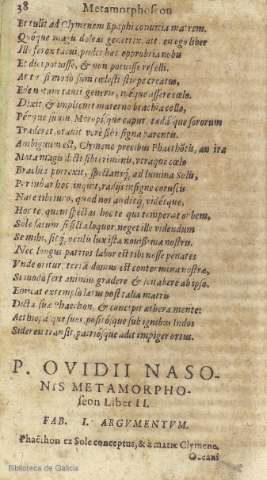 38 Metamorphoseon
Et tulit ad Clymenem Epaphi conuitia matrem.
Quóque magis doleas genitrix, ait, en ego liber
Ille ferox tacui. pudet hæc opprobria nobis
Et dici potuisse, & non potuisse refelli.
At tu si modo sum cælesti stirpe creatus,
Ede notam tanti generis, méque assere cælo.
Dixit & implicuit materno brachia collo,
Pérque suum, Meropísque caput tædásque sororum
Traderet, orauit veri sibi signa parentis.
Ambiguum est, Clymene precibus Phaethōtis, an ira
Mota magis dicti sibi criminis, vtraque cœlo
Brachia porrexit, spectansq́; ad lumina Solis,
Per iubar hoc inquit, radijs insigne coruscis
Nate tibi iuro, quod nos auditq́, vidétque,
Hoc te quem spectas hoc te qui temperat orbem,
Sole satum si ficta loquor, neget ille videndum
Se mihi, sitq́; oculis lux ista nouissima nostris.
Nec longus patrios labor est tibi nosse penates
Vnde oritur terræ domus est contermina nostræ,
Si modo fert animus gradere & scitabere ab ipso.
Emicat extemplo lætus post talia matris
Dicta suæ Phaethon, & concipit æthera mente:
Aethiopásque suos, positósque sub ignibus Indos
Sidereis transit, patriósque adit impiger ortus.
P. OVIDII NASO-
NIS METAMORPHO-
seon Liber II.
FAB. I. ARGVMENTVM.
Phaëthon ex Sole conceptus, & à matre Clymene,
Oceani
Biblioteca de Galicia